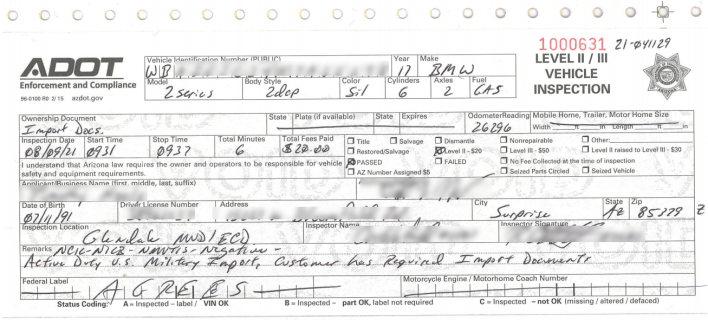 1000631 21-041129
ADOT
Enforcement and Compliance
96-0100 R0 2/15 azdot.gov
LEVEL II / III
VEHICLE
INSPECTION
Vehicle Identification Number (PUBLIC) Year Make
WB 17 BMW
Model Body Style Color Cylinders Axles Fuel
2 series 2dcp Sil 6 2 GAS
Ownership Document State Plate (if available) State Expires Odometer Reading Mobile Home, Trailer, Motor Home Size
Import Docs. 26296 Width ft in Length ft in
Inspection Date Start Time Stop Time Total Minutes Total Fees Paid
08/09/21 0931 0937 6 $20.00
Title Salvage Dismantle Nonrepairable Other:
Restored/Salvage Level II - $20 Level III - $50 Level II raised to Level III - $30
I understand that Arizona law requires the owner and operators to be responsible for vehicle
safety and equipment requirements.
PASSED FAILED No Fee Collected at the time of inspection
AZ Number Assigned $5 Seized Parts Circled Seized Vehicle
Applicant/Business Name (first, middle, last, suffix)
Date of Birth Driver License Number Address City State Zip
07/11/91 Surprise AZ 85379 Z
Inspection Location Inspector Name Inspector Signature
Glendale MVD/ECD
Remarks NCIC-NICB-NMVTIS-Negative-
Active Duty U.S. Military Import, Customer has Required Import Documents
Federal Label Motorcycle Engine / Motorhome Coach Number
AGREES
Status Coding: A = Inspected – label / VIN OK B = Inspected – part OK, label not required C = Inspected – not OK (missing / altered / defaced)